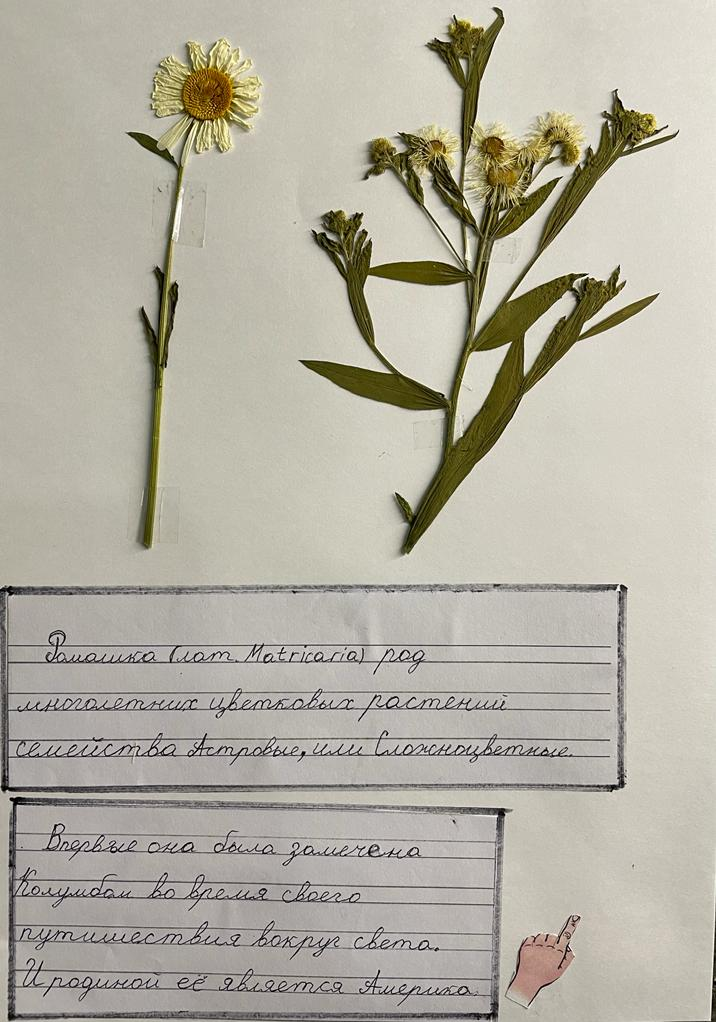 Ромашка (лат. Matricaria) род
многолетних цветковых растений
семейства Астровые, или Сложноцветные.
Впервые она была замечена
Колумбом во время своего
путишествия вокруг света.
И родиной её является Америка.